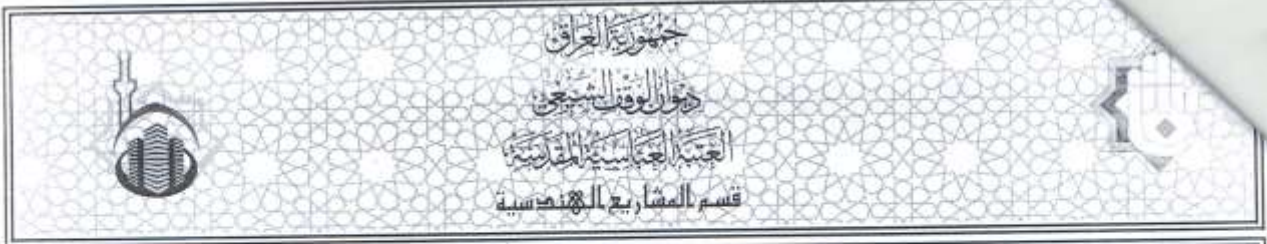 جمهورية العراق
ديوان الوقف الشيعي
العتبة العباسية المقدسة
قسم المشاريع الهندسية